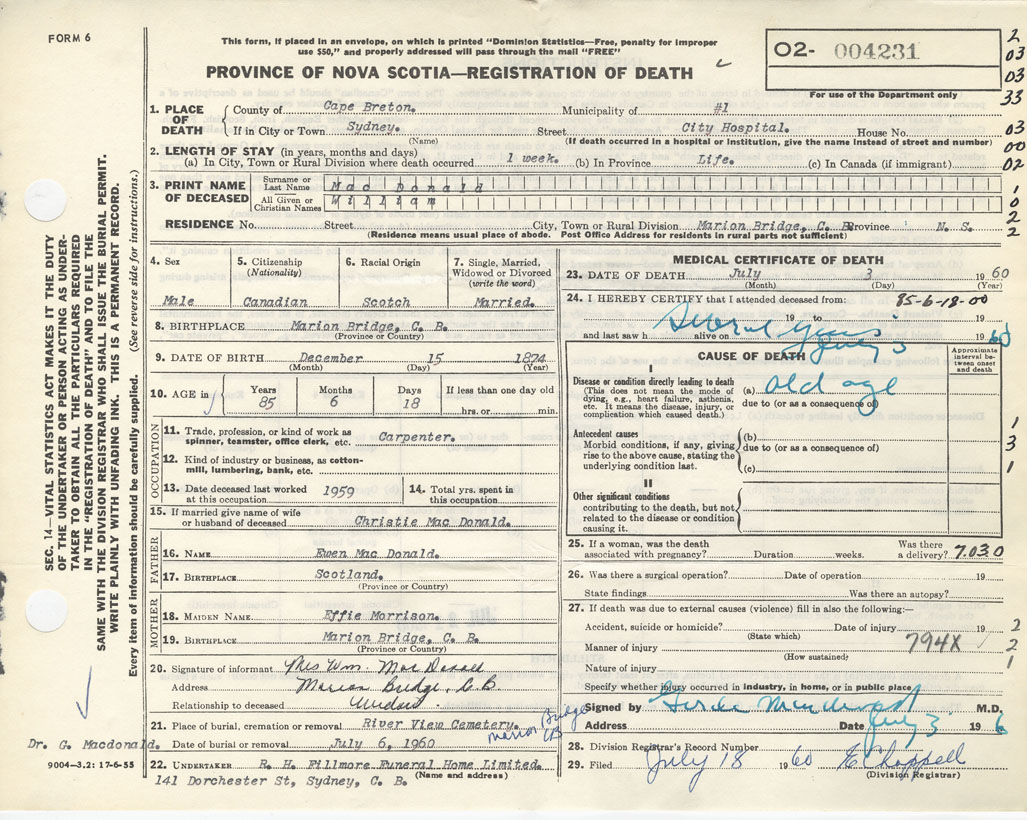 FORM 6
This form, if placed in an envelope, on which is printed "Dominion Statistics—Free, penalty for improper
use $50," and properly addressed will pass through the mail "FREE"
PROVINCE OF NOVA SCOTIA—REGISTRATION OF DEATH
O2- 004231
For use of the Department only
2
03
03
33
03
00
02
1
0
2
2
1. PLACE OF DEATH
County of Cape Breton. Municipality of #1
If in City or Town Sydney. Street City Hospital. House No.
(Name) (If death occurred in a hospital or institution, give the name instead of street and number)
2. LENGTH OF STAY (in years, months and days)
(a) In City, Town or Rural Division where death occurred 1 week. (b) In Province Life. (c) In Canada (if immigrant)
3. PRINT NAME OF DECEASED
Surname or Last Name Mac Donald
All Given or Christian Names William
RESIDENCE No. Street City, Town or Rural Division Marion Bridge, C. B. Province N. S.
(Residence means usual place of abode. Post Office Address for residents in rural parts not sufficient)
4. Sex
Male
5. Citizenship
(Nationality)
Canadian
6. Racial Origin
Scotch
7. Single, Married,
Widowed or Divorced
(write the word)
Married.
8. BIRTHPLACE Marion Bridge, C. B.
(Province or Country)
9. DATE OF BIRTH December 15 1874
(Month) (Day) (Year)
10. AGE in
Years 85
Months 6
Days 18
If less than one day old
hrs. or min.
OCCUPATION
11. Trade, profession, or kind of work as
spinner, teamster, office clerk, etc. Carpenter.
12. Kind of industry or business, as cotton-
mill, lumbering, bank, etc.
13. Date deceased last worked
at this occupation 1959
14. Total yrs. spent in
this occupation
15. If married give name of wife
or husband of deceased Christie Mac Donald.
FATHER
16. NAME Ewen Mac Donald.
17. BIRTHPLACE Scotland.
(Province or Country)
MOTHER
18. MAIDEN NAME Effie Morrison.
19. BIRTHPLACE Marion Bridge, C. B.
(Province or Country)
20. Signature of informant Mrs Wm. Mac Donald
Address Marion Bridge, C.B.
Relationship to deceased Widow
21. Place of burial, cremation or removal River View Cemetery. Marion Bridge CB
Date of burial or removal July 6, 1960
22. UNDERTAKER R. H. Fillmore Funeral Home Limited.
(Name and address)
141 Dorchester St, Sydney, C. B.
MEDICAL CERTIFICATE OF DEATH
23. DATE OF DEATH July 3 1960
(Month) (Day) (Year)
24. I HEREBY CERTIFY that I attended deceased from: 85-6-18-00
Several Years 19 to 19
and last saw h alive on July 3 1960
CAUSE OF DEATH
Approximate
interval between
onset
and death
I
Disease or condition directly leading to death
(This does not mean the mode of
dying, e.g., heart failure, asthenia,
etc. It means the disease, injury, or
complication which caused death.)
(a) old age
due to (or as a consequence of)
Antecedent causes
Morbid conditions, if any, giving
rise to the above cause, stating the
underlying condition last.
(b)
due to (or as consequence of)
(c)
II
Other significant conditions
contributing to the death, but not
related to the disease or condition
causing it.
1
3
1
25. If a woman, was the death
associated with pregnancy? Duration weeks. Was there
a delivery? 7.030
26. Was there a surgical operation? Date of operation 19
State findings Was there an autopsy?
27. If death was due to external causes (violence) fill in also the following:—
Accident, suicide or homicide? Date of injury 19
(State which)
Manner of injury 794X
(How sustained)
Nature of injury
2
2
1
Specify whether injury occurred in industry, in home, or in public place
Signed by M.D.
Address Date July 3 196
28. Division Registrar's Record Number
29. Filed July 18 1960 E Chappell
(Division Registrar)
SEC. 14—VITAL STATISTICS ACT MAKES IT THE DUTY
OF THE UNDERTAKER OR PERSON ACTING AS UNDER-
TAKER TO OBTAIN ALL THE PARTICULARS REQUIRED
IN THE "REGISTRATION OF DEATH" AND TO FILE THE
SAME WITH THE DIVISION REGISTRAR WHO SHALL ISSUE THE BURIAL PERMIT.
WRITE PLAINLY WITH UNFADING INK. THIS IS A PERMANENT RECORD.
Every item of information should be carefully supplied. (See reverse side for instructions.)
Dr. G. Macdonald.
9004—3,2: 17-6-55